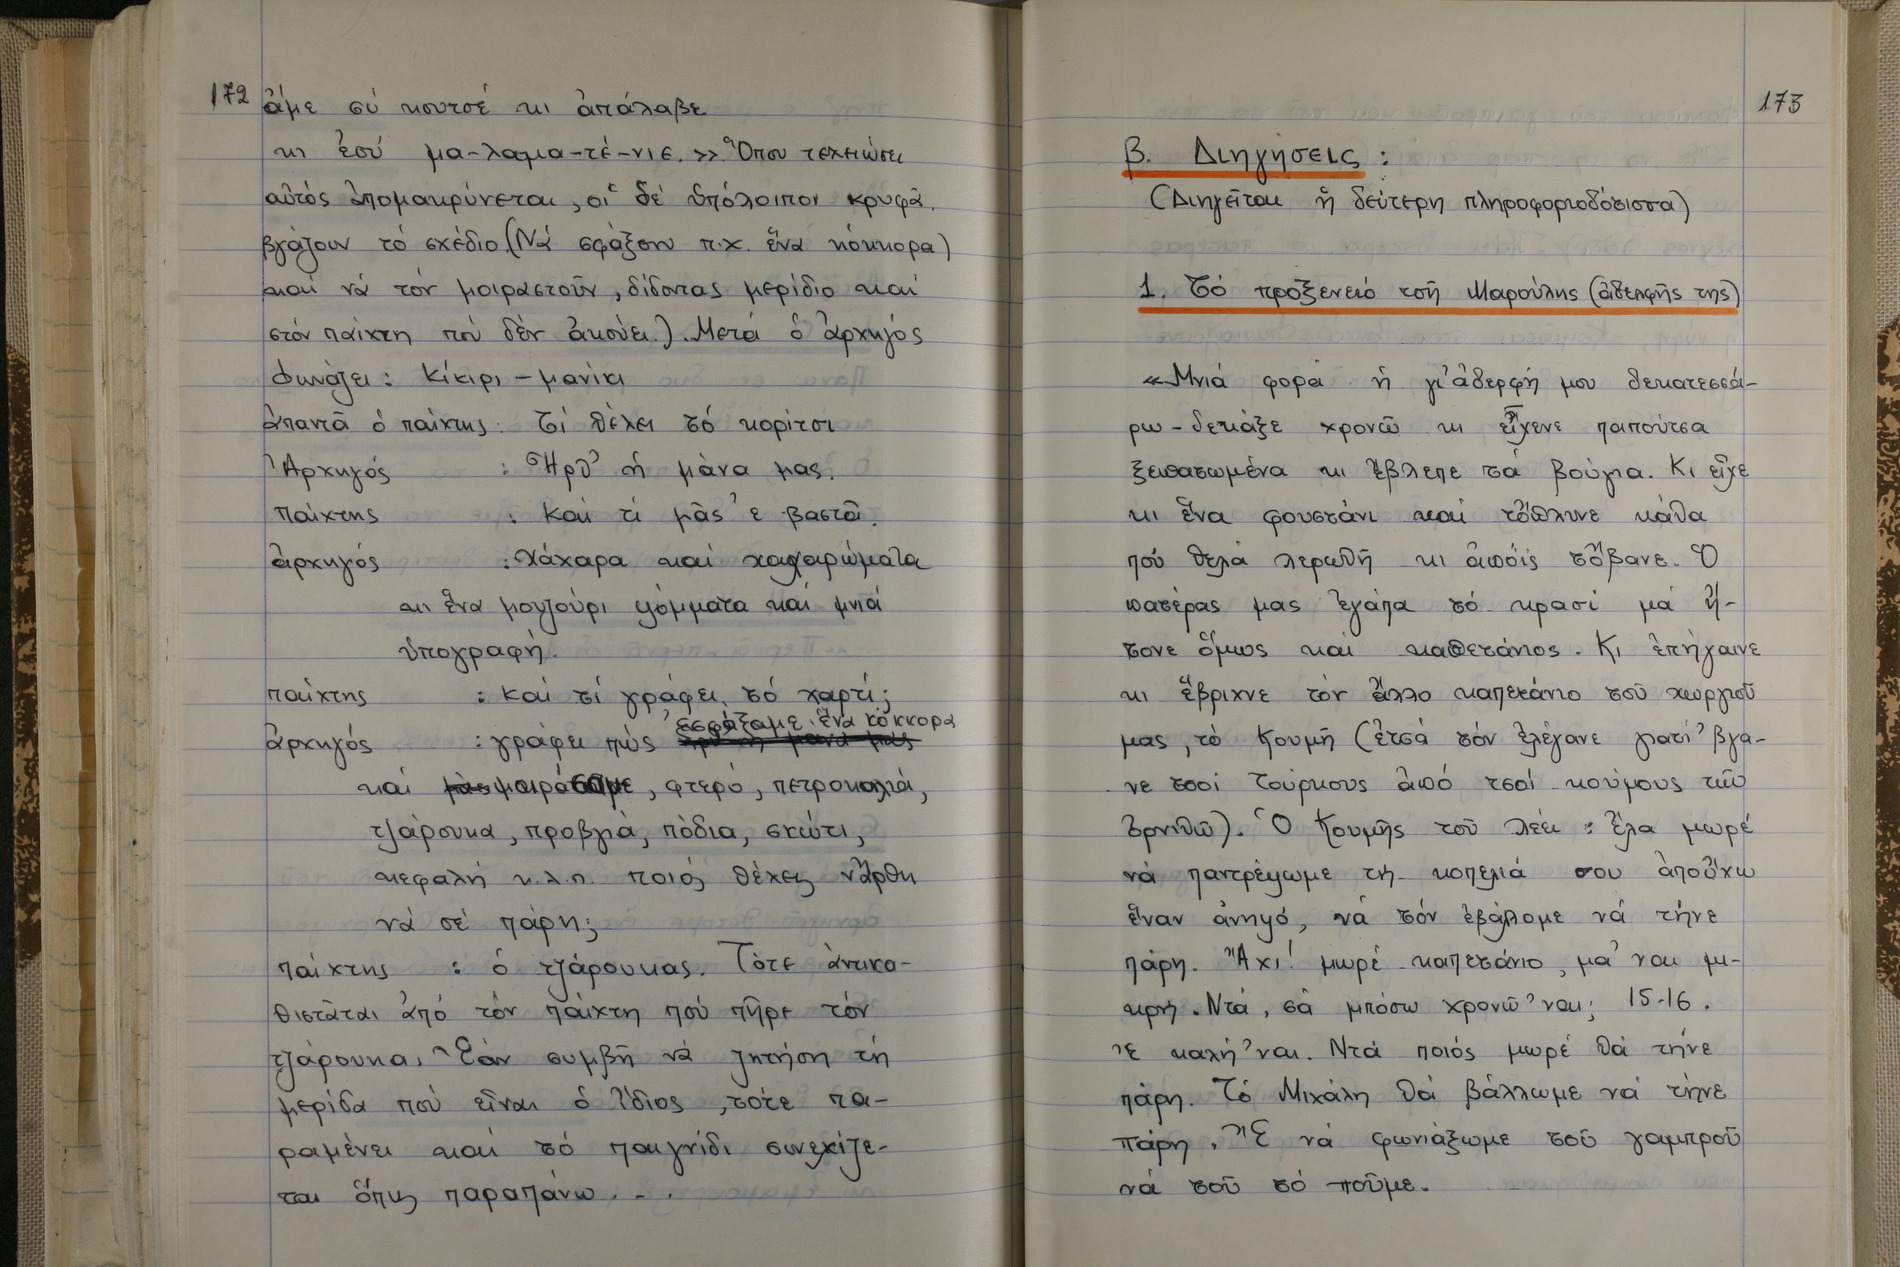 172
ἄμε σύ κουτσέ κι ἀπάλαβε
κι ἐσύ μα-λαμα-τέ-νιε.» Ὅπου τελειώσει
αὐτός ἀπομακρύνεται, οἱ δέ ὑπόλοιποι κρυφά
βγάζουν τό σχέδιο (Νά σφάξουν π.χ. ἕνα κόκκορα)
καί νά τόν μοιραστοῦν, δίδοντας μερίδιο καί
στόν παίχτη πού δέν ἀκούει.). Μετά ὁ ἀρχηγός
φωνάζει: Κίκιρι - μανίκι
ἀπαντᾶ ὁ παίχτης: Τί θέλει τό κορίτσι
Ἀρχηγός : Ἡρθ' ἡ μάνα μας.
παίχτης : καί τί μᾶς 'ε βαστᾶ.
ἀρχηγός : Χάχαρα καί χαχαρώματα
κι ἕνα μουζούρι ψόμματα καί μνιά
ὑπογραφή.
παίχτης : καί τί γράφει τό χαρτί;
ἀρχηγός : γράφει πώς ἐσφάξαμε ἕνα κόκκορα
καί μοιράσαμε, φτερό, πετροκοιλιά,
τζάρουκα, προβγιά, πόδια, σκώτι,
κεφαλή κ.λ.π. ποιός θέλεις νἄρθη
νά σέ πάρη;
παίχτης : ὁ τζάρουκας. Τότε ἀντικα-
θιστᾶται ἀπό τόν παίχτη πού πῆρε τόν
τζάρουκα. Ἐάν συμβῆ νά ζητήση τή
μερίδα πού εἶναι ὁ ἴδιος, τότε πα-
ραμένει καί τό παιγνίδι συνεχίζε-
ται ὅπως παραπάνω...
173
β. Διηγήσεις :
(Διηγεῖται ἡ δεύτερη πληροφοριοδότισσα)
1. Τό προξενειό τσῆ Μαρούλης (ἀδελφῆς της)
«Μνιά φορά ἡ γι' ἀδερφή μου δεκατεσσά-
ρω-δεκάξε χρονῶ κι εἶχενε παπούτσα
ξεπατωμένα κι ἔβλεπε τά βούγια. Κι εἶχε
κι ἕνα φουστάνι καί τὄπλυνε κάθα
πού θελά λερωθῆ κι ἀπόις τὄβανε. Ὁ
πατέρας μας ἐγάπα τό κρασί μά ἤ-
τονε ὅμως καί καπετάνιος. Κι ἐπήγαινε
κι ἔβριχνε τόν ἄλλο καπετάνιο τοῦ χωργιοῦ
μας, τό Κουμῆ (ἐτσά τόν ἐλέγανε γιατί 'βγα-
νε τσοί Τούρκους ἀπό τσοί κούμους τῶ
ὀρνιθῶ). Ὁ Κουμῆς τοῦ λέει : ἔλα μωρέ
νά παντρέψωμε τή κοπελιά σου ἀποὔχω
ἕναν ἀνηψό, νά τόν ἐβάλομε νά τήνε
πάρη. Ἄχι! μωρέ καπετάνιο, μά 'ναι μι-
κρή. Ντά, σά μπόσω χρονῶ 'ναι; 15-16.
Ἐ καλή 'ναι. Ντά ποιός μωρέ θά τήνε
πάρη. Τό Μιχάλη θά βάλλωμε νά τήνε
πάρη. Ἔ νά φωνιάξωμε τοῦ γαμπροῦ
νά τοῦ τό ποῦμε.